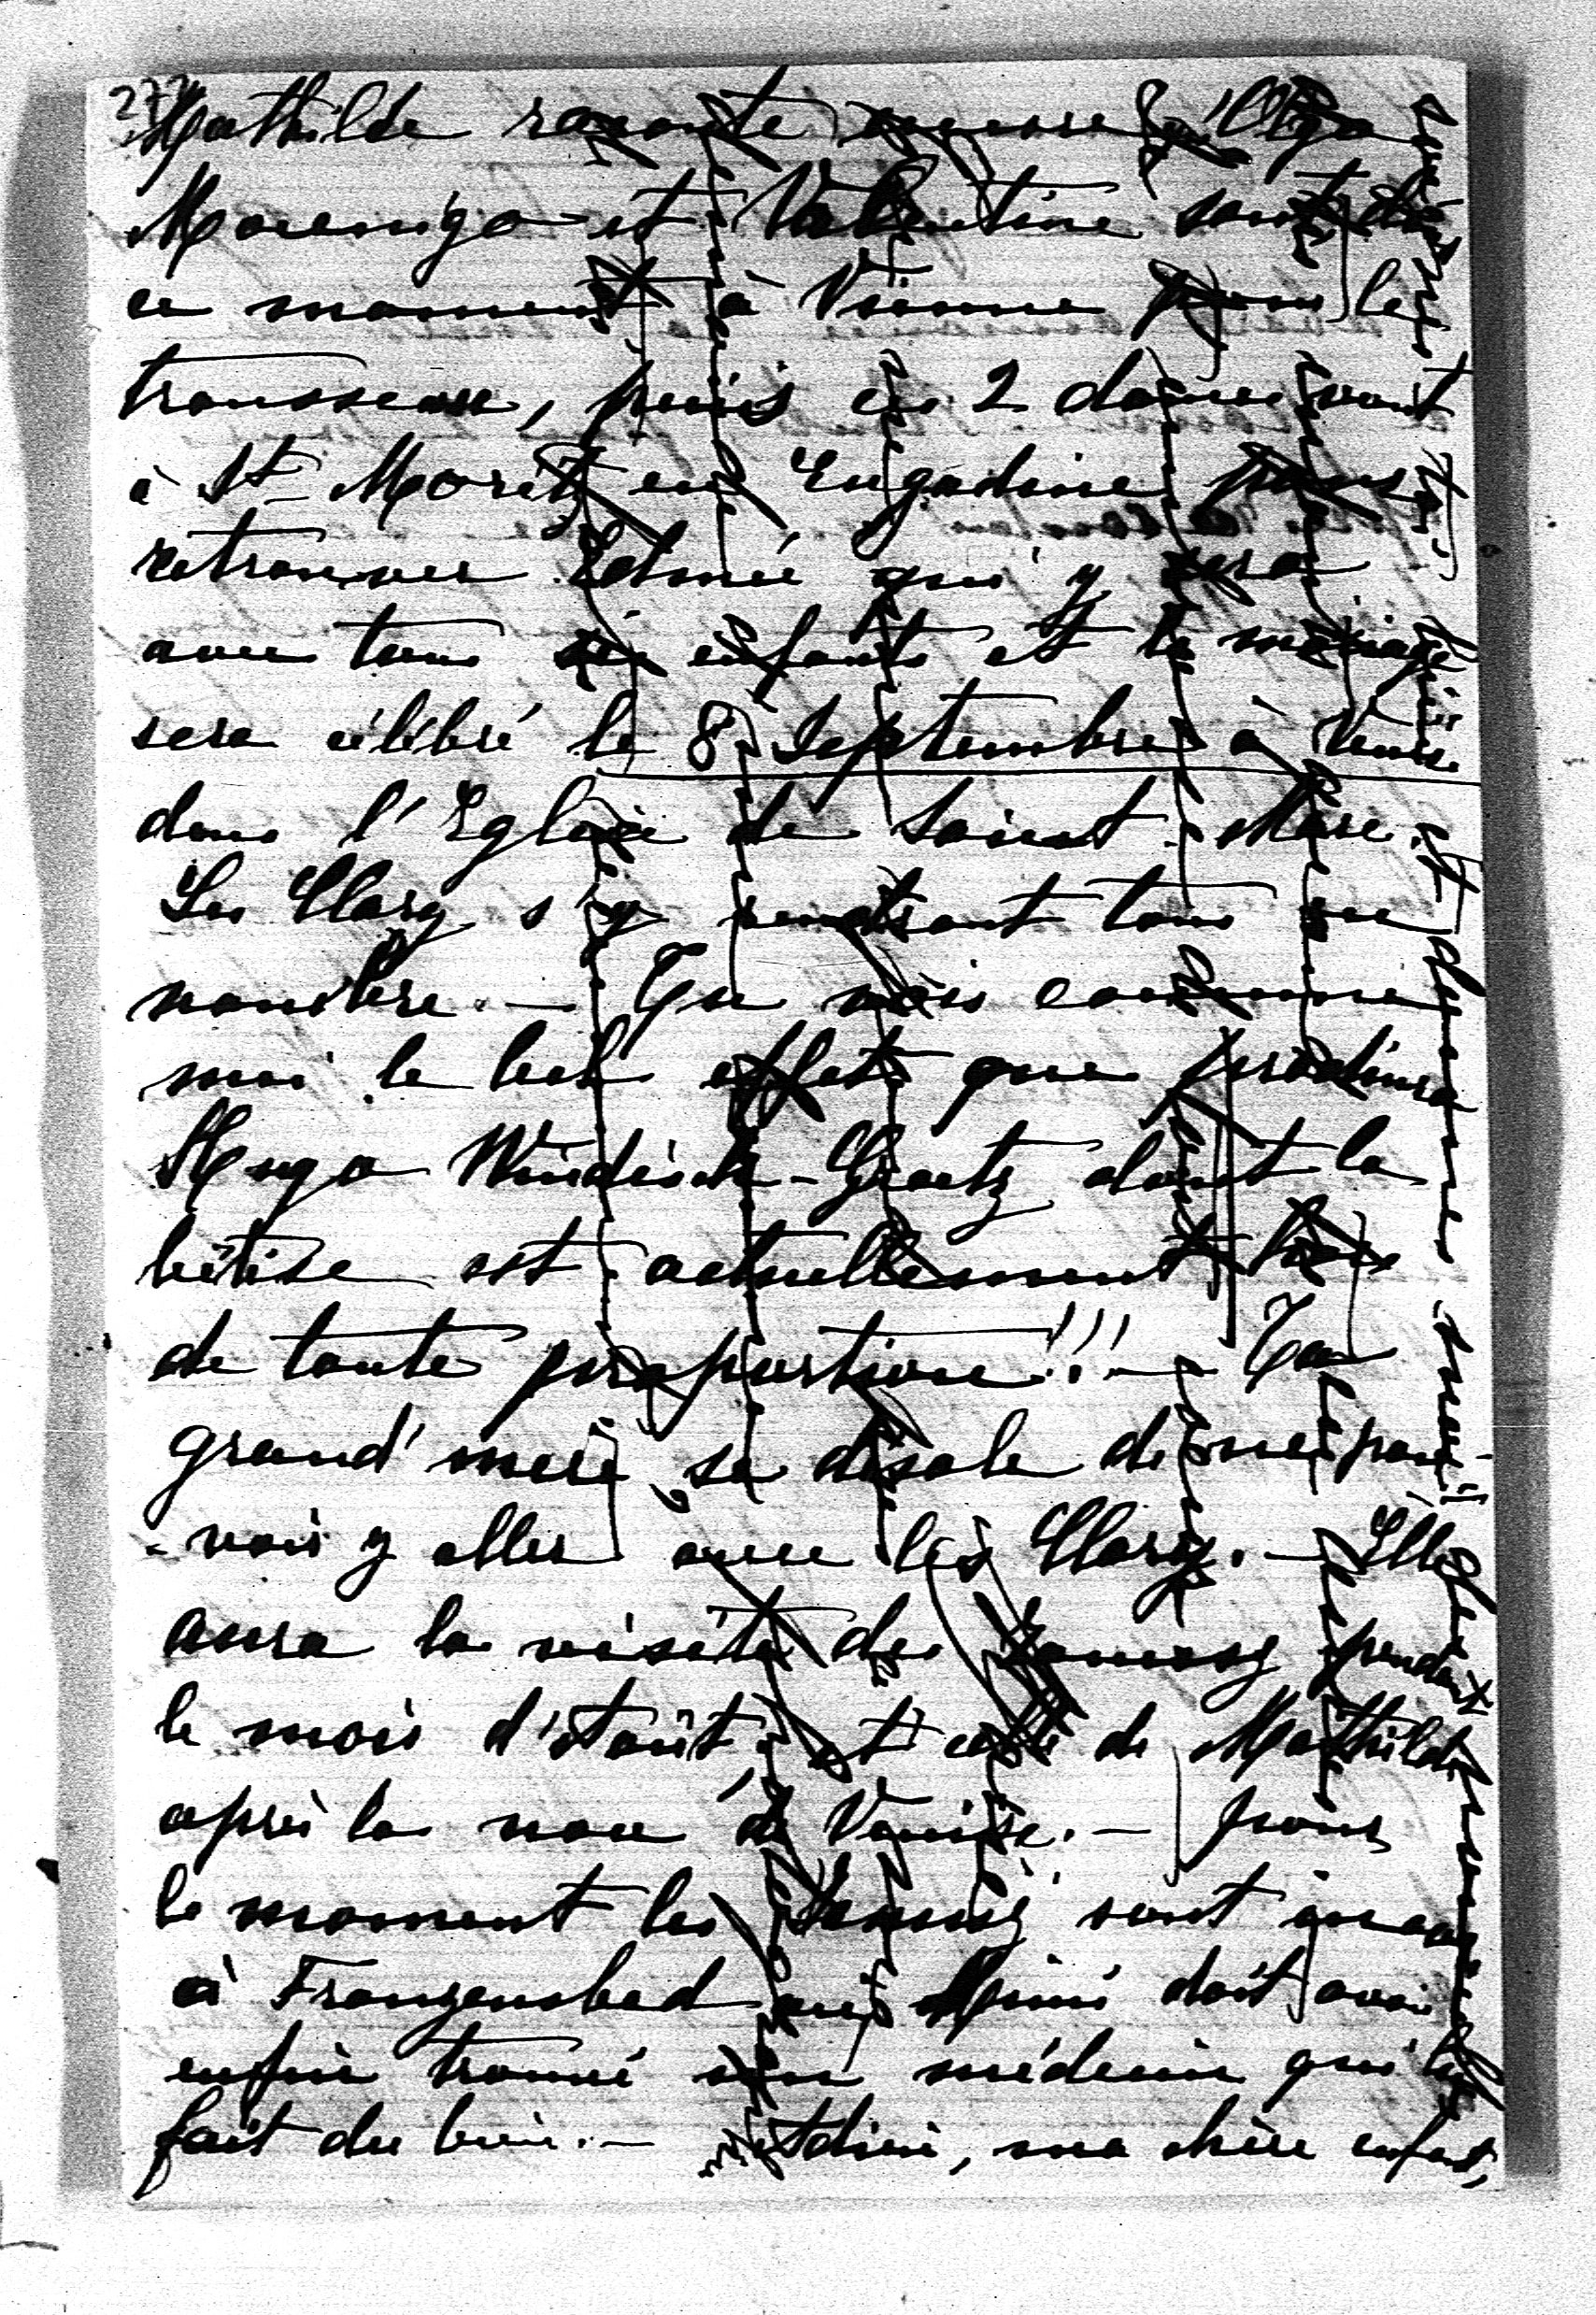 277
Mathilde raconte encore qu'Olga
Mocenigo et Valentine sont dans
ce moment à Vienne pour le
trousseau, puis ces 2 dames vont
à St Moritz en Engadine pour
retrouver Edmée qui y sera
avec tous ses enfants et le mariage
sera célébré le 8 Septembre à Venise
dans l'Eglise de Saint Marc.
Les Clary s'y rendront tous en
nombre. — Tu vois comme
moi le bel effet que produira
Hugo Windisch-Graetz dont la
bêtise est actuellement hors
de toute proportion!!! — Ta
grand'mère se désole de ne pou-
-voir y aller avec les Clary. — Elle
aura la visite des pendant
le mois d'Août et celle de Mathilde
après la noce de Venise. — pour
le moment les sont encore
à Franzensbad où Mimi doit avoir
enfin trouvé un médecin qui lui
fait du bien. — Adieu, ma chère enfant,